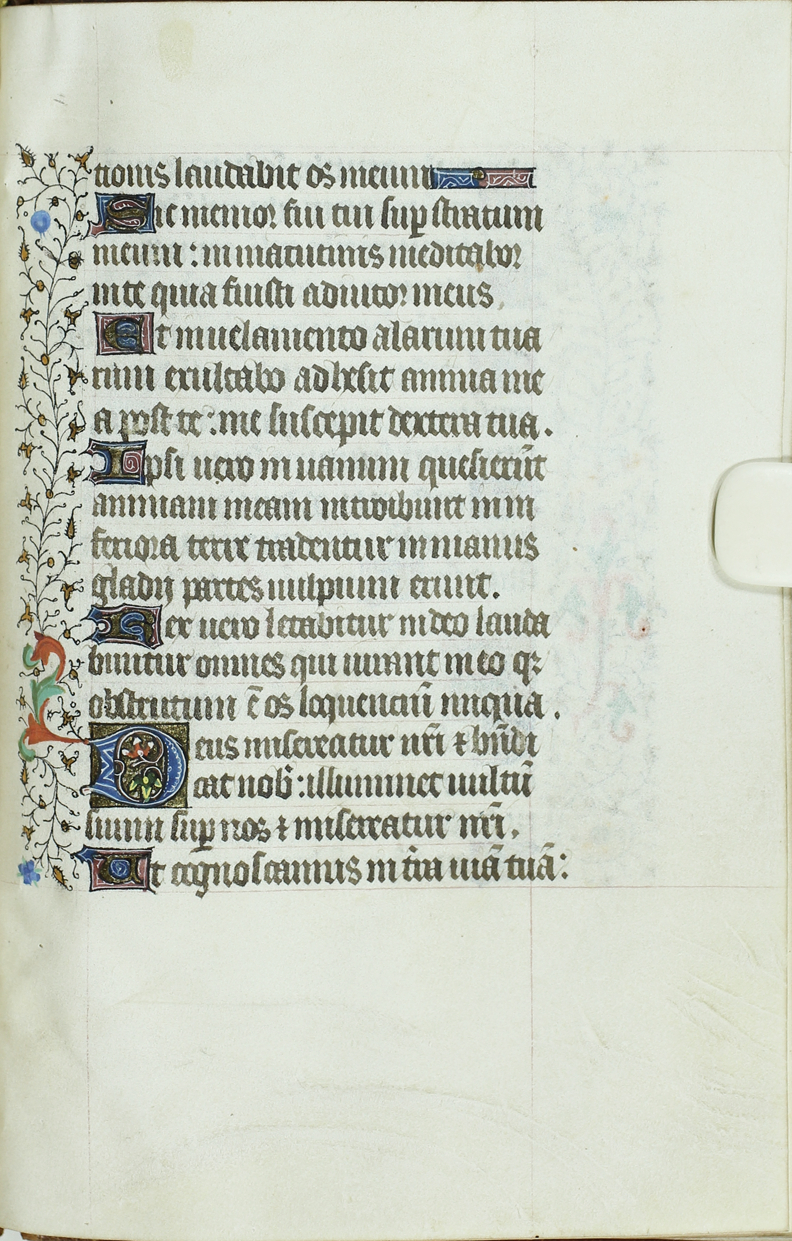 tionis laudabit os meum
Sic memor fui tui sup stratum
meum : in matutinis meditabor
in te quia fuisti adiutor meus .
Et in uelamento alarum tua
rum exultabo adhesit anima me
a post te : me suscepit dextera tua .
Ipsi uero in uanum quesierūt
animam meam introibunt in in
feriora terre tradentur in manus
gladij partes uulpium erunt .
Rex uero letabitur in deo lauda
buntur omnes qui iurant in eo qꝛ
obstrutum ē os loquenciū iniqua .
Deus misereatur nr̄i ⁊ bn̄di
cat nob̄ : illuminet uultū
suum sup nos ⁊ misereatur nr̄i .
Ut cognoscamus in tr̄a uiā tuā :